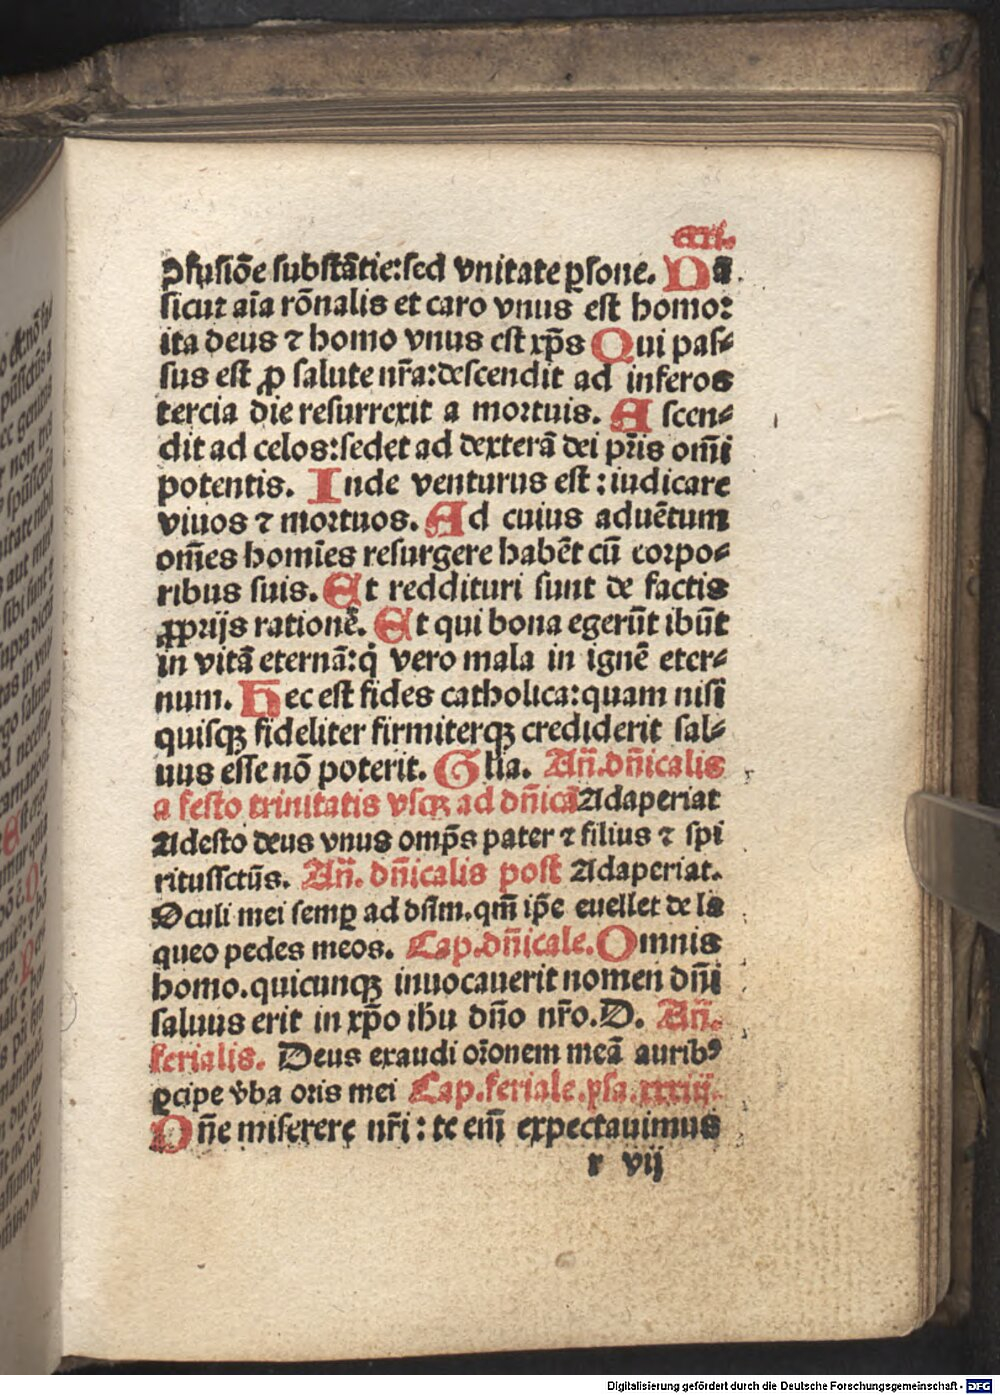 ꝯfusiõe substãtie:sed vnitate ꝑsone. Nã
sicut aĩa rõnalis et caro vnus est homo:
ita deus ⁊ homo vnus est xp̃s Qui pas⸗
sus est ꝓ salute nr̃a:descendit ad inferos
tercia die resurrexit a mortuis. Ascen⸗
dit ad celos:sedet ad dexterã dei pr̃is om̃i
potentis. Inde venturus est : iudicare
viuos ⁊ mortuos. Ad cuius aduẽtum
om̃es homĩes resurgere habẽt cũ corpo⸗
ribus suis. Et reddituri sunt de factis
ꝓprijs rationẽ. Et qui bona egerũt ibũt
in vitã eternã:q̃ vero mala in ignẽ eter⸗
num. Hec est fides catholica:quam nisi
quisqꝫ fideliter firmiterqꝫ crediderit sal⸗
uus esse nõ poterit. Glia. Añ.dñicalis
a festo trinitatis vsqꝫ ad dñicã Adaperiat
Adesto deus vnus omp̃s pater ⁊ filius ⁊ spi
ritussctũs. Añ. dñicalis post Adaperiat.
Oculi mei semꝑ ad dñm.qm̃ ip̃e euellet de la
queo pedes meos. Cap.dñicale. Omnis
homo.quicunqꝫ inuocauerit nomen dñi
saluus erit in xp̃o ihu dño nr̃o.D. Añ.
ferialis. Deus exaudi or̃onem meã auribꝰ
ꝑcipe v̾ba oris mei Cap.feriale.psa.xxxiij.
Dñe miserere nr̃i : te eni᷑ expectauimus
r vij
Digitalisierung gefördert durch die Deutsche Forschungsgemeinschaft - DFG